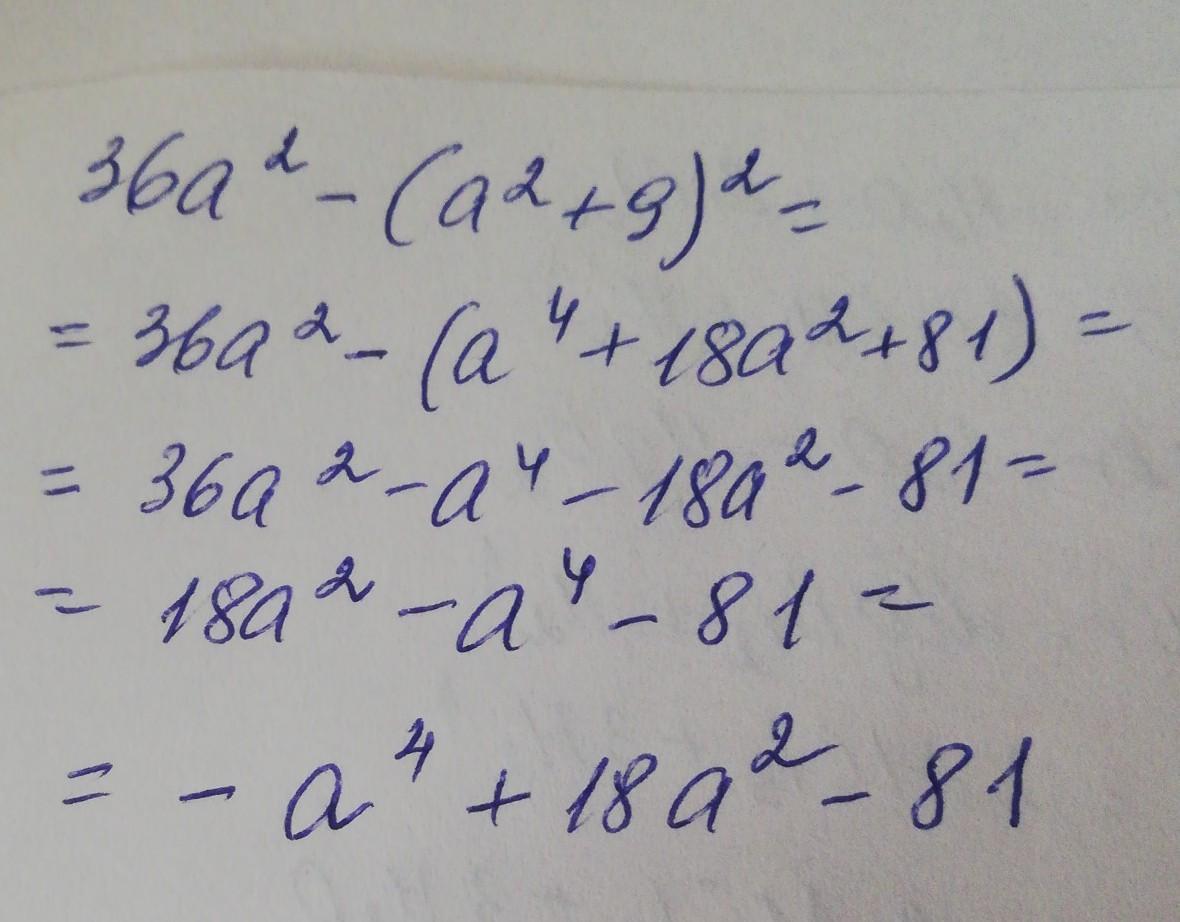 36a² - (a² + 9)² =
= 36a² - (a⁴ + 18a² + 81) =
= 36a² - a⁴ - 18a² - 81 =
= 18a² - a⁴ - 81 =
= - a⁴ + 18a² - 81